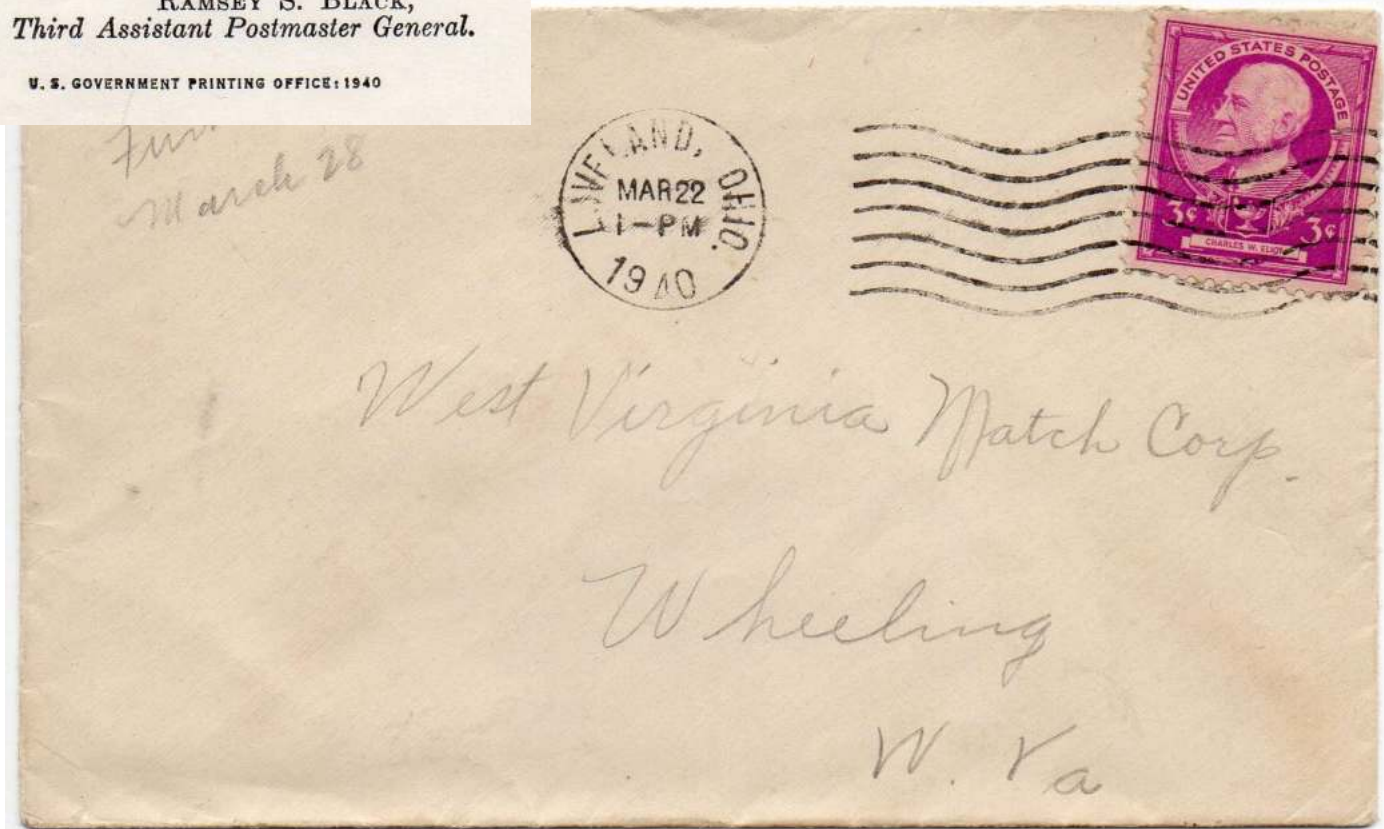 RAMSEY S. BLACK,
Third Assistant Postmaster General.
U. S. GOVERNMENT PRINTING OFFICE: 1940
March 28
LOVELAND, OHIO.
MAR 22
1-PM
1940
UNITED STATES POSTAGE
3¢ 3¢
CHARLES W. ELIOT
West Virginia Match Corp.
Wheeling
W. Va